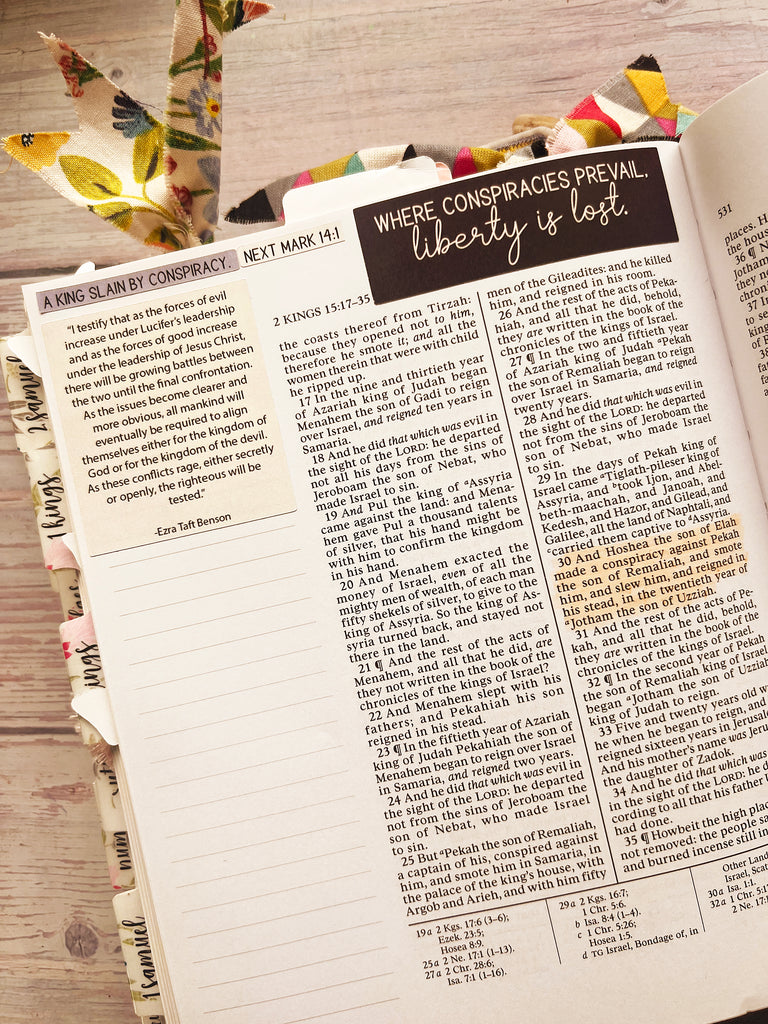 WHERE CONSPIRACIES PREVAIL,
liberty is lost.
A KING SLAIN BY CONSPIRACY.
NEXT MARK 14:1
"I testify that as the forces of evil
increase under Lucifer's leadership
and as the forces of good increase
under the leadership of Jesus Christ,
there will be growing battles between
the two until the final confrontation.
As the issues become clearer and
more obvious, all mankind will
eventually be required to align
themselves either for the kingdom of
God or for the kingdom of the devil.
As these conflicts rage, either secretly
or openly, the righteous will be
tested."
-Ezra Taft Benson
2 KINGS 15:17–35
the coasts thereof from Tirzah:
because they opened not to him,
therefore he smote it; and all the
women therein that were with child
he ripped up.
17 In the nine and thirtieth year
of Azariah king of Judah began
Menahem the son of Gadi to reign
over Israel, and reigned ten years in
Samaria.
18 And he did that which was evil in
the sight of the LORD: he departed
not all his days from the sins of
Jeroboam the son of Nebat, who
made Israel to sin.
19 And Pul the king of aAssyria
came against the land: and Mena-
hem gave Pul a thousand talents
of silver, that his hand might be
with him to confirm the kingdom
in his hand.
20 And Menahem exacted the
money of Israel, even of all the
mighty men of wealth, of each man
fifty shekels of silver, to give to the
king of Assyria. So the king of As-
syria turned back, and stayed not
there in the land.
21 ¶ And the rest of the acts of
Menahem, and all that he did, are
they not written in the book of the
chronicles of the kings of Israel?
22 And Menahem slept with his
fathers; and Pekahiah his son
reigned in his stead.
23 ¶ In the fiftieth year of Azariah
king of Judah Pekahiah the son of
Menahem began to reign over Israel
in Samaria, and reigned two years.
24 And he did that which was evil in
the sight of the LORD: he departed
not from the sins of Jeroboam the
son of Nebat, who made Israel
to sin.
25 But aPekah the son of Remaliah,
a captain of his, conspired against
him, and smote him in Samaria, in
the palace of the king's house, with
Argob and Arieh, and with him fifty
men of the Gileadites: and he killed
him, and reigned in his room.
26 And the rest of the acts of Peka-
hiah, and all that he did, behold,
they are written in the book of the
chronicles of the kings of Israel.
27 ¶ In the two and fiftieth year
of Azariah king of Judah aPekah
the son of Remaliah began to reign
over Israel in Samaria, and reigned
twenty years.
28 And he did that which was evil in
the sight of the LORD: he departed
not from the sins of Jeroboam the
son of Nebat, who made Israel
to sin.
29 In the days of Pekah king of
Israel came aTiglath-pileser king of
Assyria, and btook Ijon, and Abel-
beth-maachah, and Janoah, and
Kedesh, and Hazor, and Gilead, and
Galilee, all the land of Naphtali, and
ccarried them captive to dAssyria.
30 And Hoshea the son of Elah
made a conspiracy against Pekah
the son of Remaliah, and smote
him, and slew him, and reigned in
his stead, in the twentieth year of
aJotham the son of Uzziah.
31 And the rest of the acts of Pe-
kah, and all that he did, behold,
they are written in the book of the
chronicles of the kings of Israel.
32 ¶ In the second year of Pekah
the son of Remaliah king of Israel
began aJotham the son of Uzziah
king of Judah to reign.
33 Five and twenty years old w
he when he began to reign, and
reigned sixteen years in Jerusale
And his mother's name was Jeru
the daughter of Zadok.
34 And he did that which was
in the sight of the LORD: he d
cording to all that his father
had done.
35 ¶ Howbeit the high plac
not removed: the people sa
and burned incense still in
19a 2 Kgs. 17:6 (3–6);
Ezek. 23:5;
Hosea 8:9.
25a 2 Ne. 17:1 (1–13).
27a 2 Chr. 28:6;
Isa. 7:1 (1–16).
29a 2 Kgs. 16:7;
1 Chr. 5:6.
b Isa. 8:4 (1–4).
c 1 Chr. 5:26;
Hosea 1:5.
d TG Israel, Bondage of, in
Other Land
Israel, Scat
30a Isa. 1:1.
32a 1 Chr. 5:1
2 Ne. 17:
531
places. H
the hous
36 ¶ N
Jotham
they no
chroni
37 In
to se
king
of R
38
fat
2 Samuel
1 Kings
1 Samuel